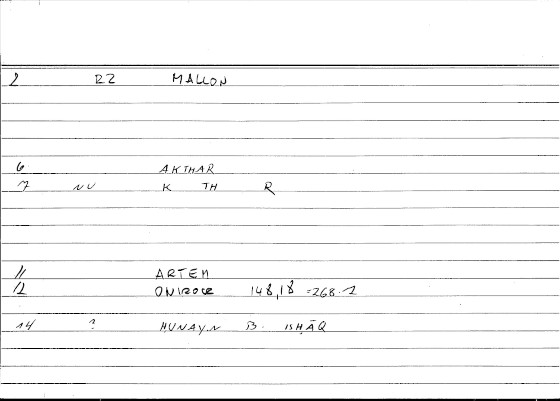 2 RZ MALLON
6 AKTHAR
7 NU K TH R
11 ARTEM
12 ONIROCR 148,18 =268.1
14 ? ḤUNAYN B. ISḤĀQ